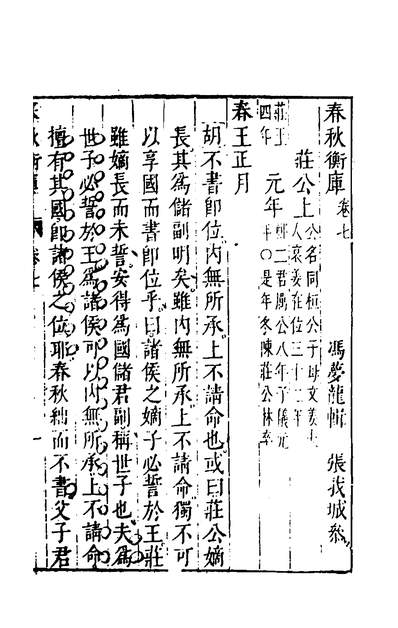 春秋衡庫 卷七 馮夢龍輯 張我城參
莊公上 公名同桓公子母文姜夫人哀姜在位三十二年
莊王四年 元年 鄭二君厲公八年子儀元年○是年冬陳莊公林卒
春王正月
胡不書即位內無所承上不請命也或曰莊公嫡
長其為儲副明矣雖內無所承上不請命獨不可
以享國而書即位乎曰諸侯之嫡子必誓於王莊
雖嫡長而未誓安得為國儲君副稱世子也夫為
世子必誓於王為諸侯可以內無所承上不請命
擅有其國即諸侯之位耶春秋絀而不書父子君
春秋衡庫 卷七 一